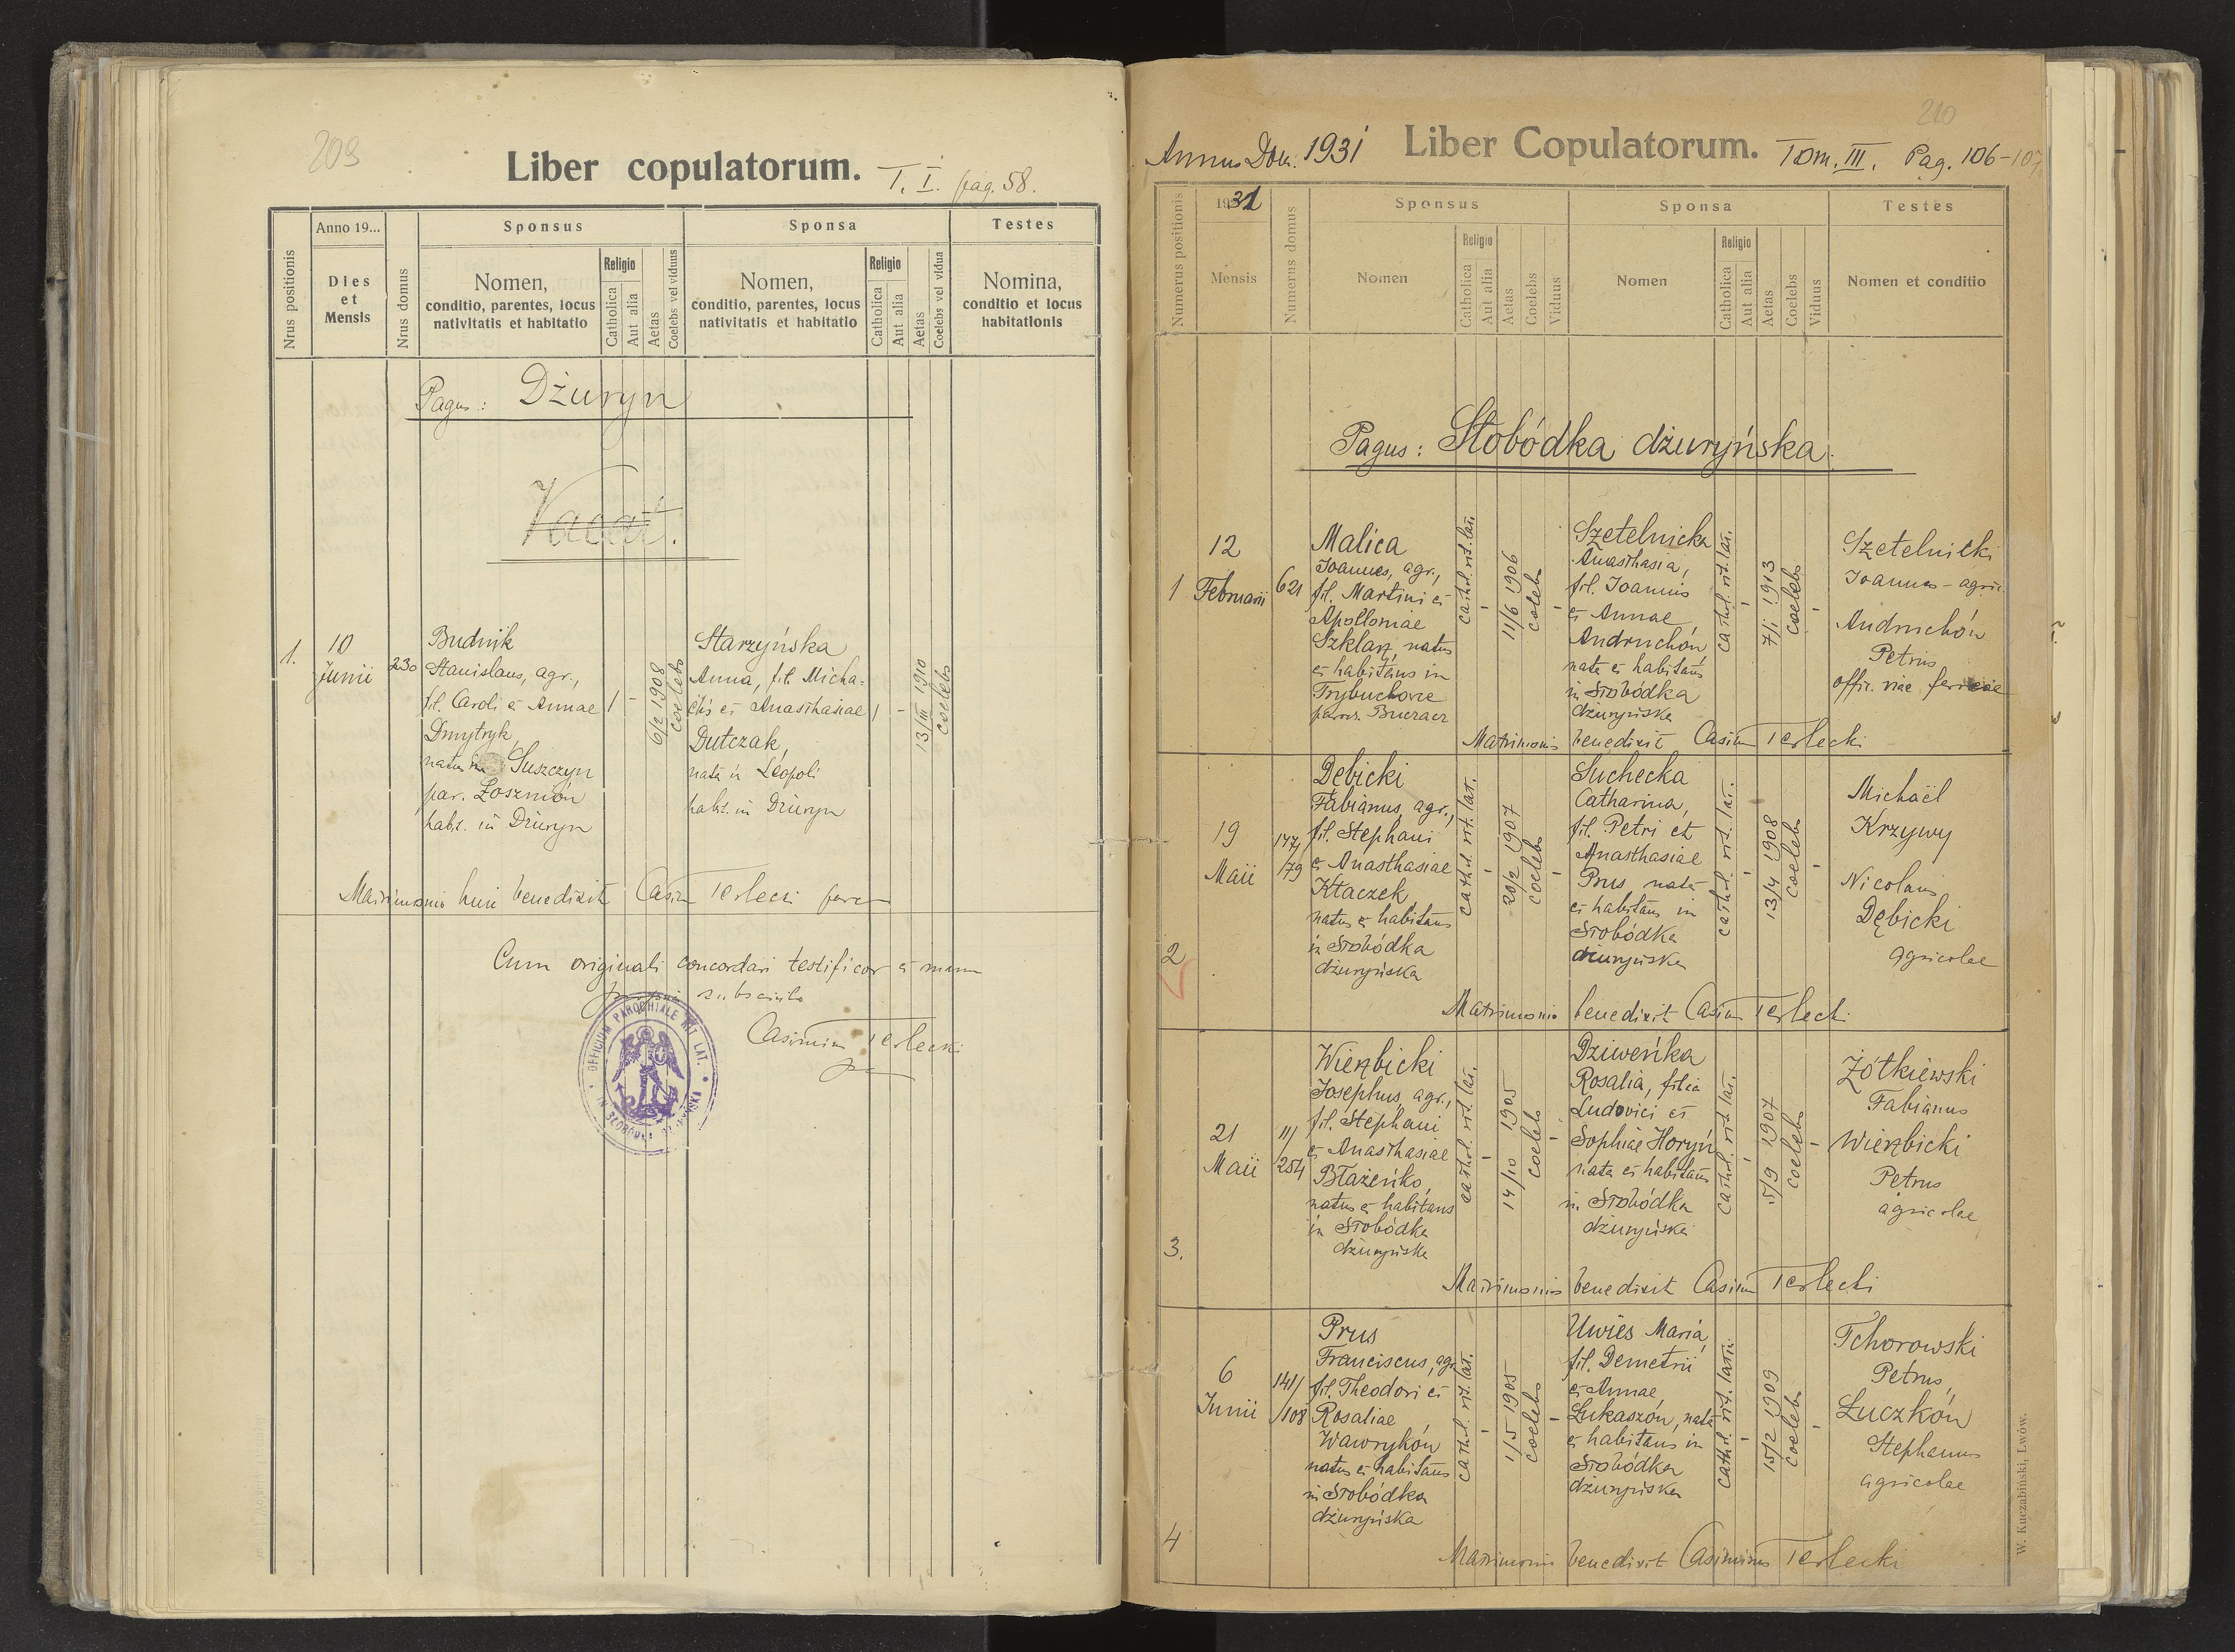 209
Liber copulatorum. T. I. pag. 58.
Nrus positionis
Anno 19...
Dies
et
Mensis
Nrus domus
Sponsus
Nomen,
conditio, parentes, locus
nativitatis et habitatio
Religio
Catholica
Aut alia
Aetas
Coelebs vel viduus
Sponsa
Nomen,
conditio, parentes, locus
nativitatis et habitatio
Religio
Catholica
Aut alia
Aetas
Coelebs vel vidua
Testes
Nomina,
conditio et locus
habitationis
Pagus: Dżuryn
Vacat.
1.
10
Junii
230
Budnik
Stanislaus, agr.,
fil. Caroli et Annae
Dmytryk,
natus in Suszczyn
par. Łoszniów
habit. in Dżuryn
1
-
6/2 1908
coelebs
Starzyńska
Anna, fil. Micha=
elis et Anasthasiae
Dutczak,
nata in Leopoli
habit. in Dżuryn
1
-
13/III 1910
coelebs
Matrimonio huic benedixit Casim Terlecki
Cum originali concordari testificor et manu
subscribo
Casimirus Terlecki
OFFICIUM PAROCHIALE RIT. LAT.
210
Annus Dom. 1931 Liber Copulatorum. Tom. III. Pag. 106-107
Numerus positionis
1931
Mensis
Numerus domus
Sponsus
Nomen
Religio
Catholica
Aut alia
Aetas
Coelebs
Viduus
Sponsa
Nomen
Religio
Catholica
Aut alia
Aetas
Coelebs
Viduus
Testes
Nomen et conditio
Pagus: Słobódka dżuryńska.
1
12
Februarii
621
Malica
Joannes, agr.,
fil. Martini et
Apolloniae
Szklarz, natus
et habitans in
Trybuchowce
paroch. Buczacz
cathol. rit. lat.
-
11/6 1906
coelebs
-
Szetelnicka
Anasthasia,
fil. Joannis
et Annae
Andruchów
nata et habitans
in Słobódka
dżuryńska
cathol. rit. lat.
-
7/1 1913
coelebs
-
Szetelnicki
Joannes - agric.
Andruchów
Petrus
offic. viae ferreae
Matrimonio benedixit Casim Terlecki
2
19
Maii
177/
/79
Dębicki
Fabianus, agr.,
fil. Stephani
et Anasthasiae
Kłaczek,
natus et habitans
in Słobódka
dżuryńska
cathol. rit. lat.
-
20/2 1907
coelebs
-
Suchecka
Catharina,
fil. Petri et
Anasthasiae
Prus nata
et habitans in
Słobódka
dżuryńska
cathol. rit. lat.
-
13/4 1908
coelebs
-
Michaël
Krzywy
Nicolaus
Dębicki
agricolae
Matrimonio benedixit Casim Terlecki
3.
21
Maii
11/
/254
Wierzbicki
Josephus, agr.,
fil. Stephani
et Anasthasiae
Błażeńko,
natus et habitans
in Słobódka
dżuryńska
cathol. rit. lat.
-
14/10 1905
coelebs
-
Dziweńka
Rosalia, filia
Ludovici et
Sophiae Horyń
nata et habitans
in Słobódka
dżuryńska
cathol. rit. lat.
-
5/9 1907
coelebs
-
Żółkiewski
Fabianus
Wierzbicki
Petrus
agricolae
Matrimonio benedixit Casim Terlecki
4
6
Junii
141/
/108
Prus
Franciscus, agr.
fil. Theodori et
Rosaliae
Wawryków
natus et habitans
in Słobódka
dżuryńska
cathol. rit. lat.
-
1/5 1905
coelebs
-
Uwies Maria,
fil. Demetrii
et Annae
Łukaszów, nata
et habitans in
Słobódka
dżuryńska
cathol. rit. latin.
-
15/2 1909
coelebs
-
Tchorowski
Petrus,
Łuczków
Stephanus
agricolae
Matrimonio benedixit Casimirus Terlecki
W. Kuczabiński, Lwów.